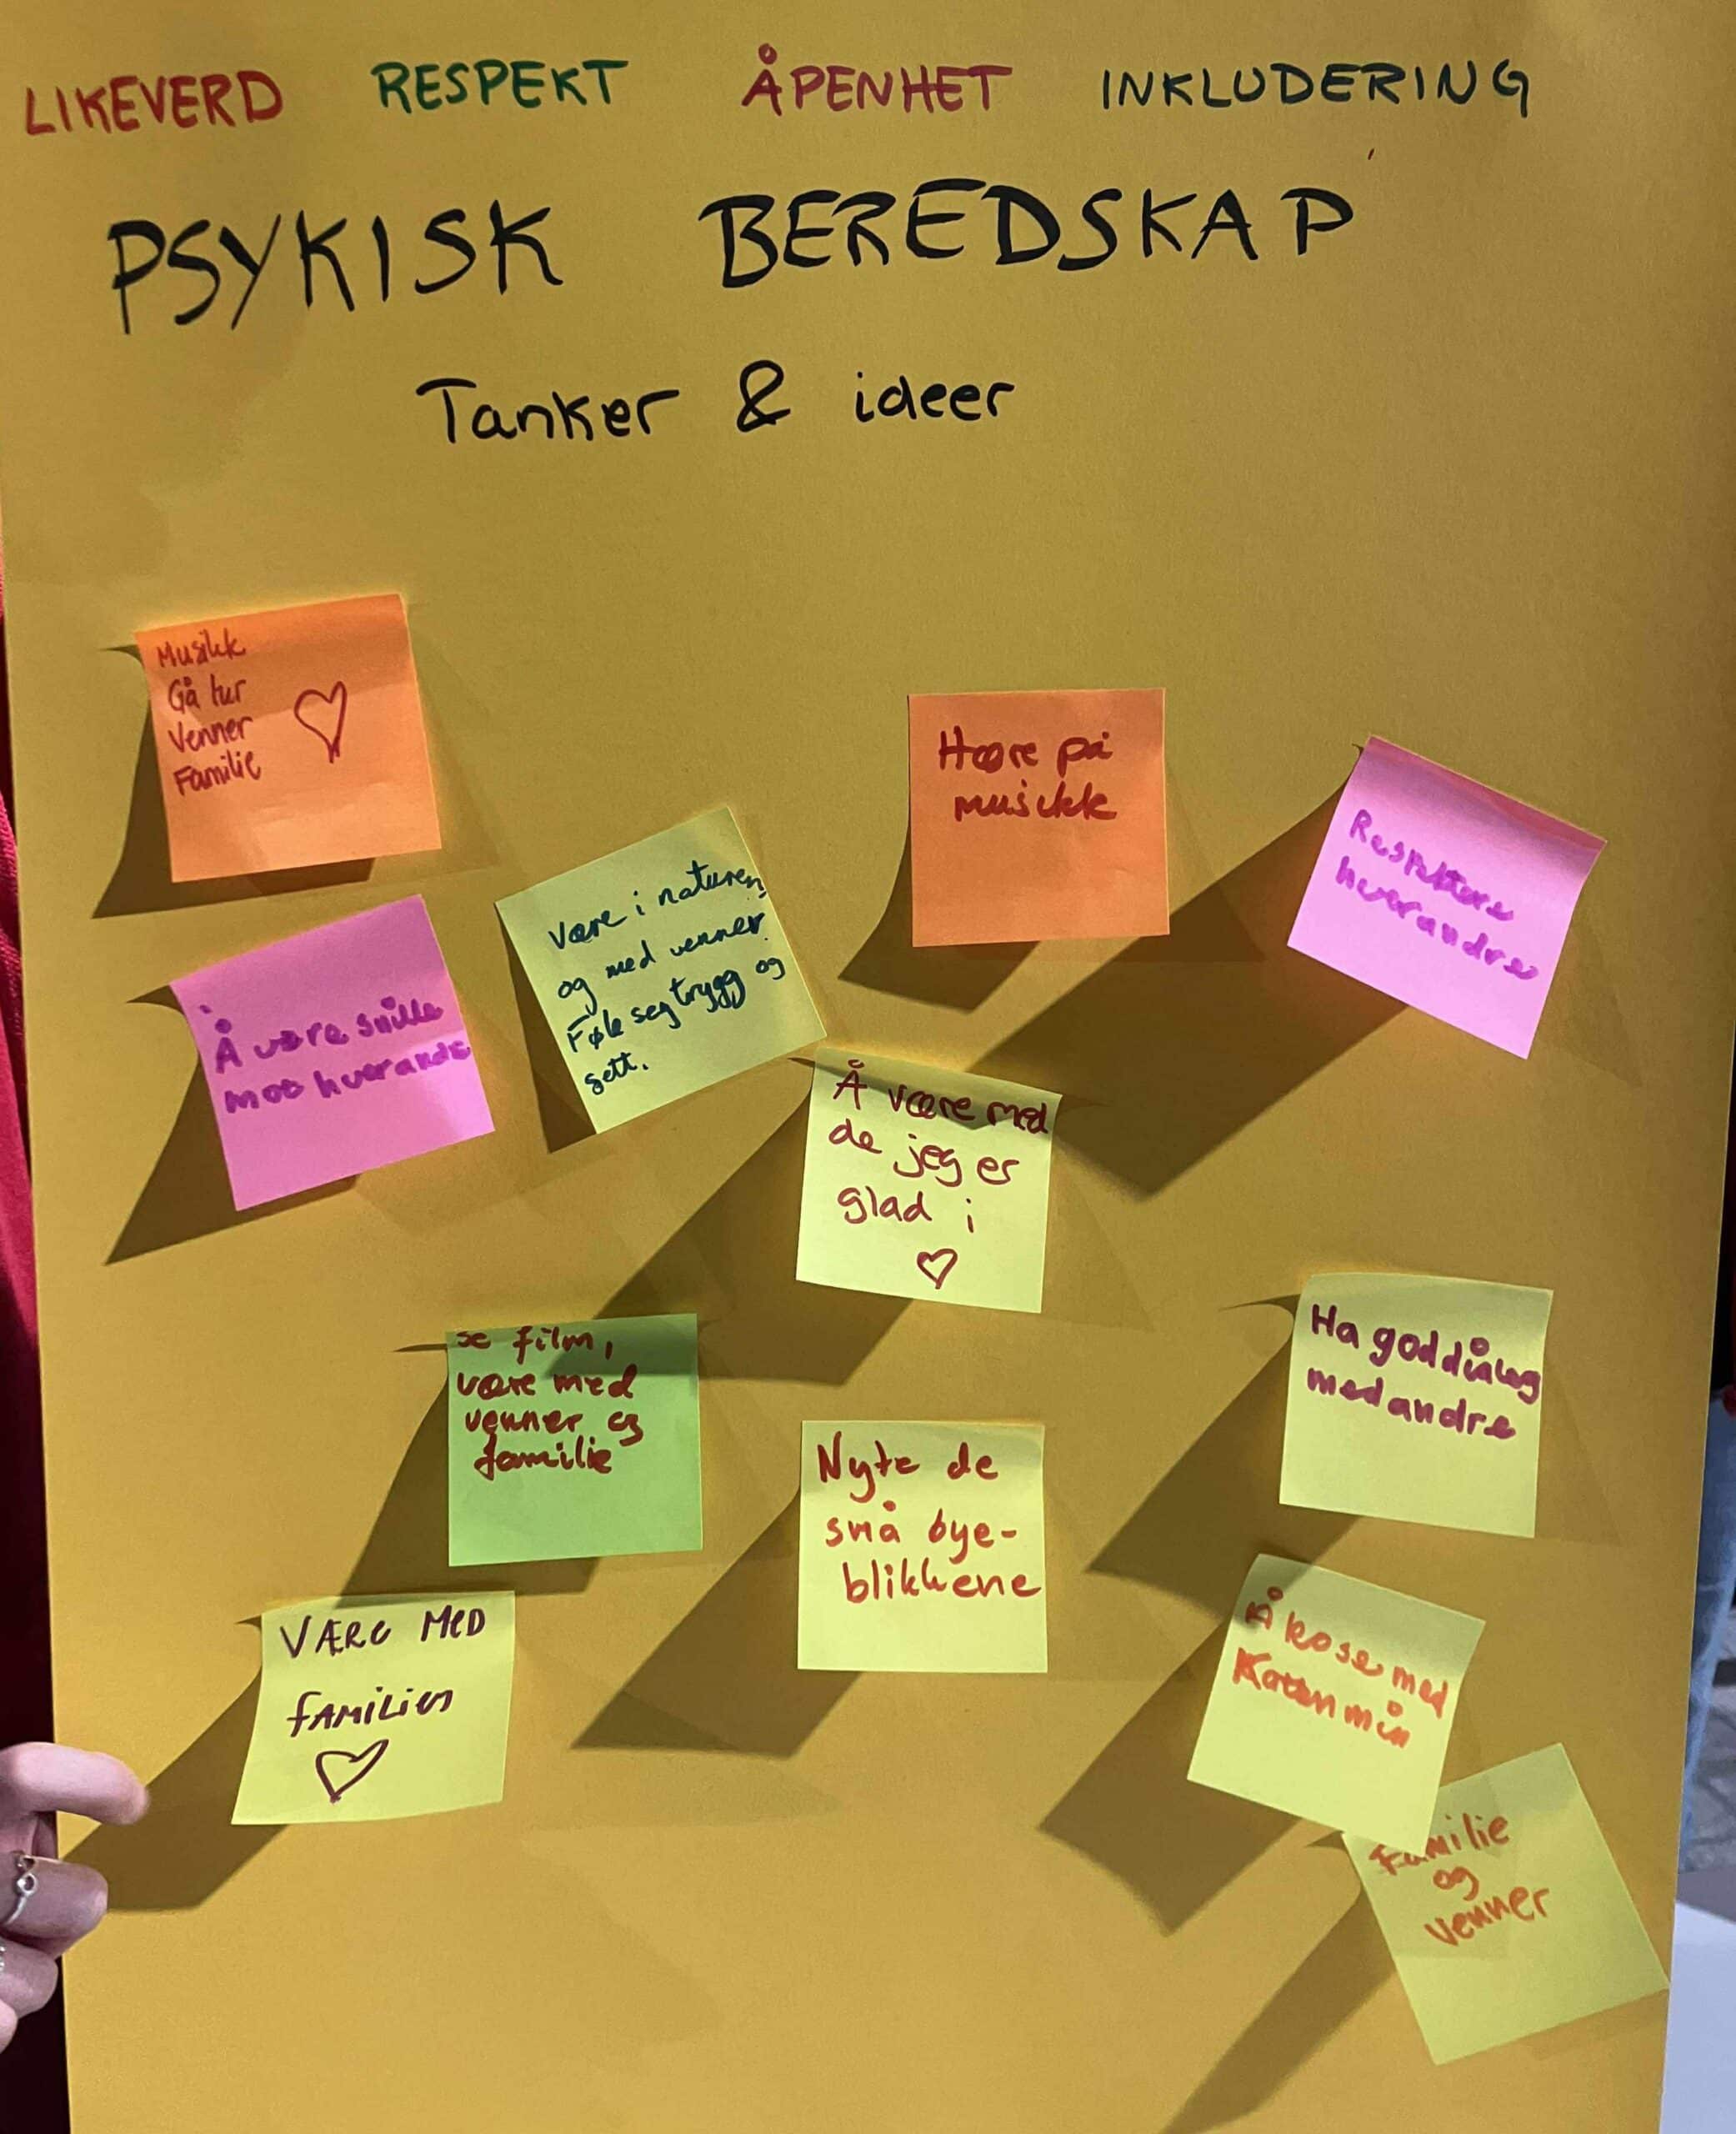 LIKEVERD RESPEKT ÅPENHET INKLUDERING
PSYKISK BEREDSKAP
Tanker & ideer
Musikk
Gå tur
Venner
Familie
Høre på
musikk
Respektere
hverandre
Være i naturen
og med venner.
Føle seg trygg og
sett.
Å være snille
mot hverandre
Å være med
de jeg er
glad i
Ha god dialog
med andre
se film,
være med
venner og
familie
Nyte de
små øye-
blikkene
Å kose med
Katten min
VÆRE MED
FAMILIEN
Familie
og
venner